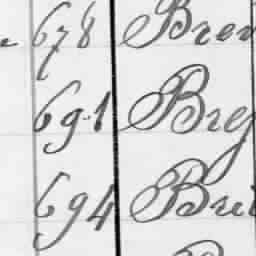 678 Bren
691 Breg
694 Brei